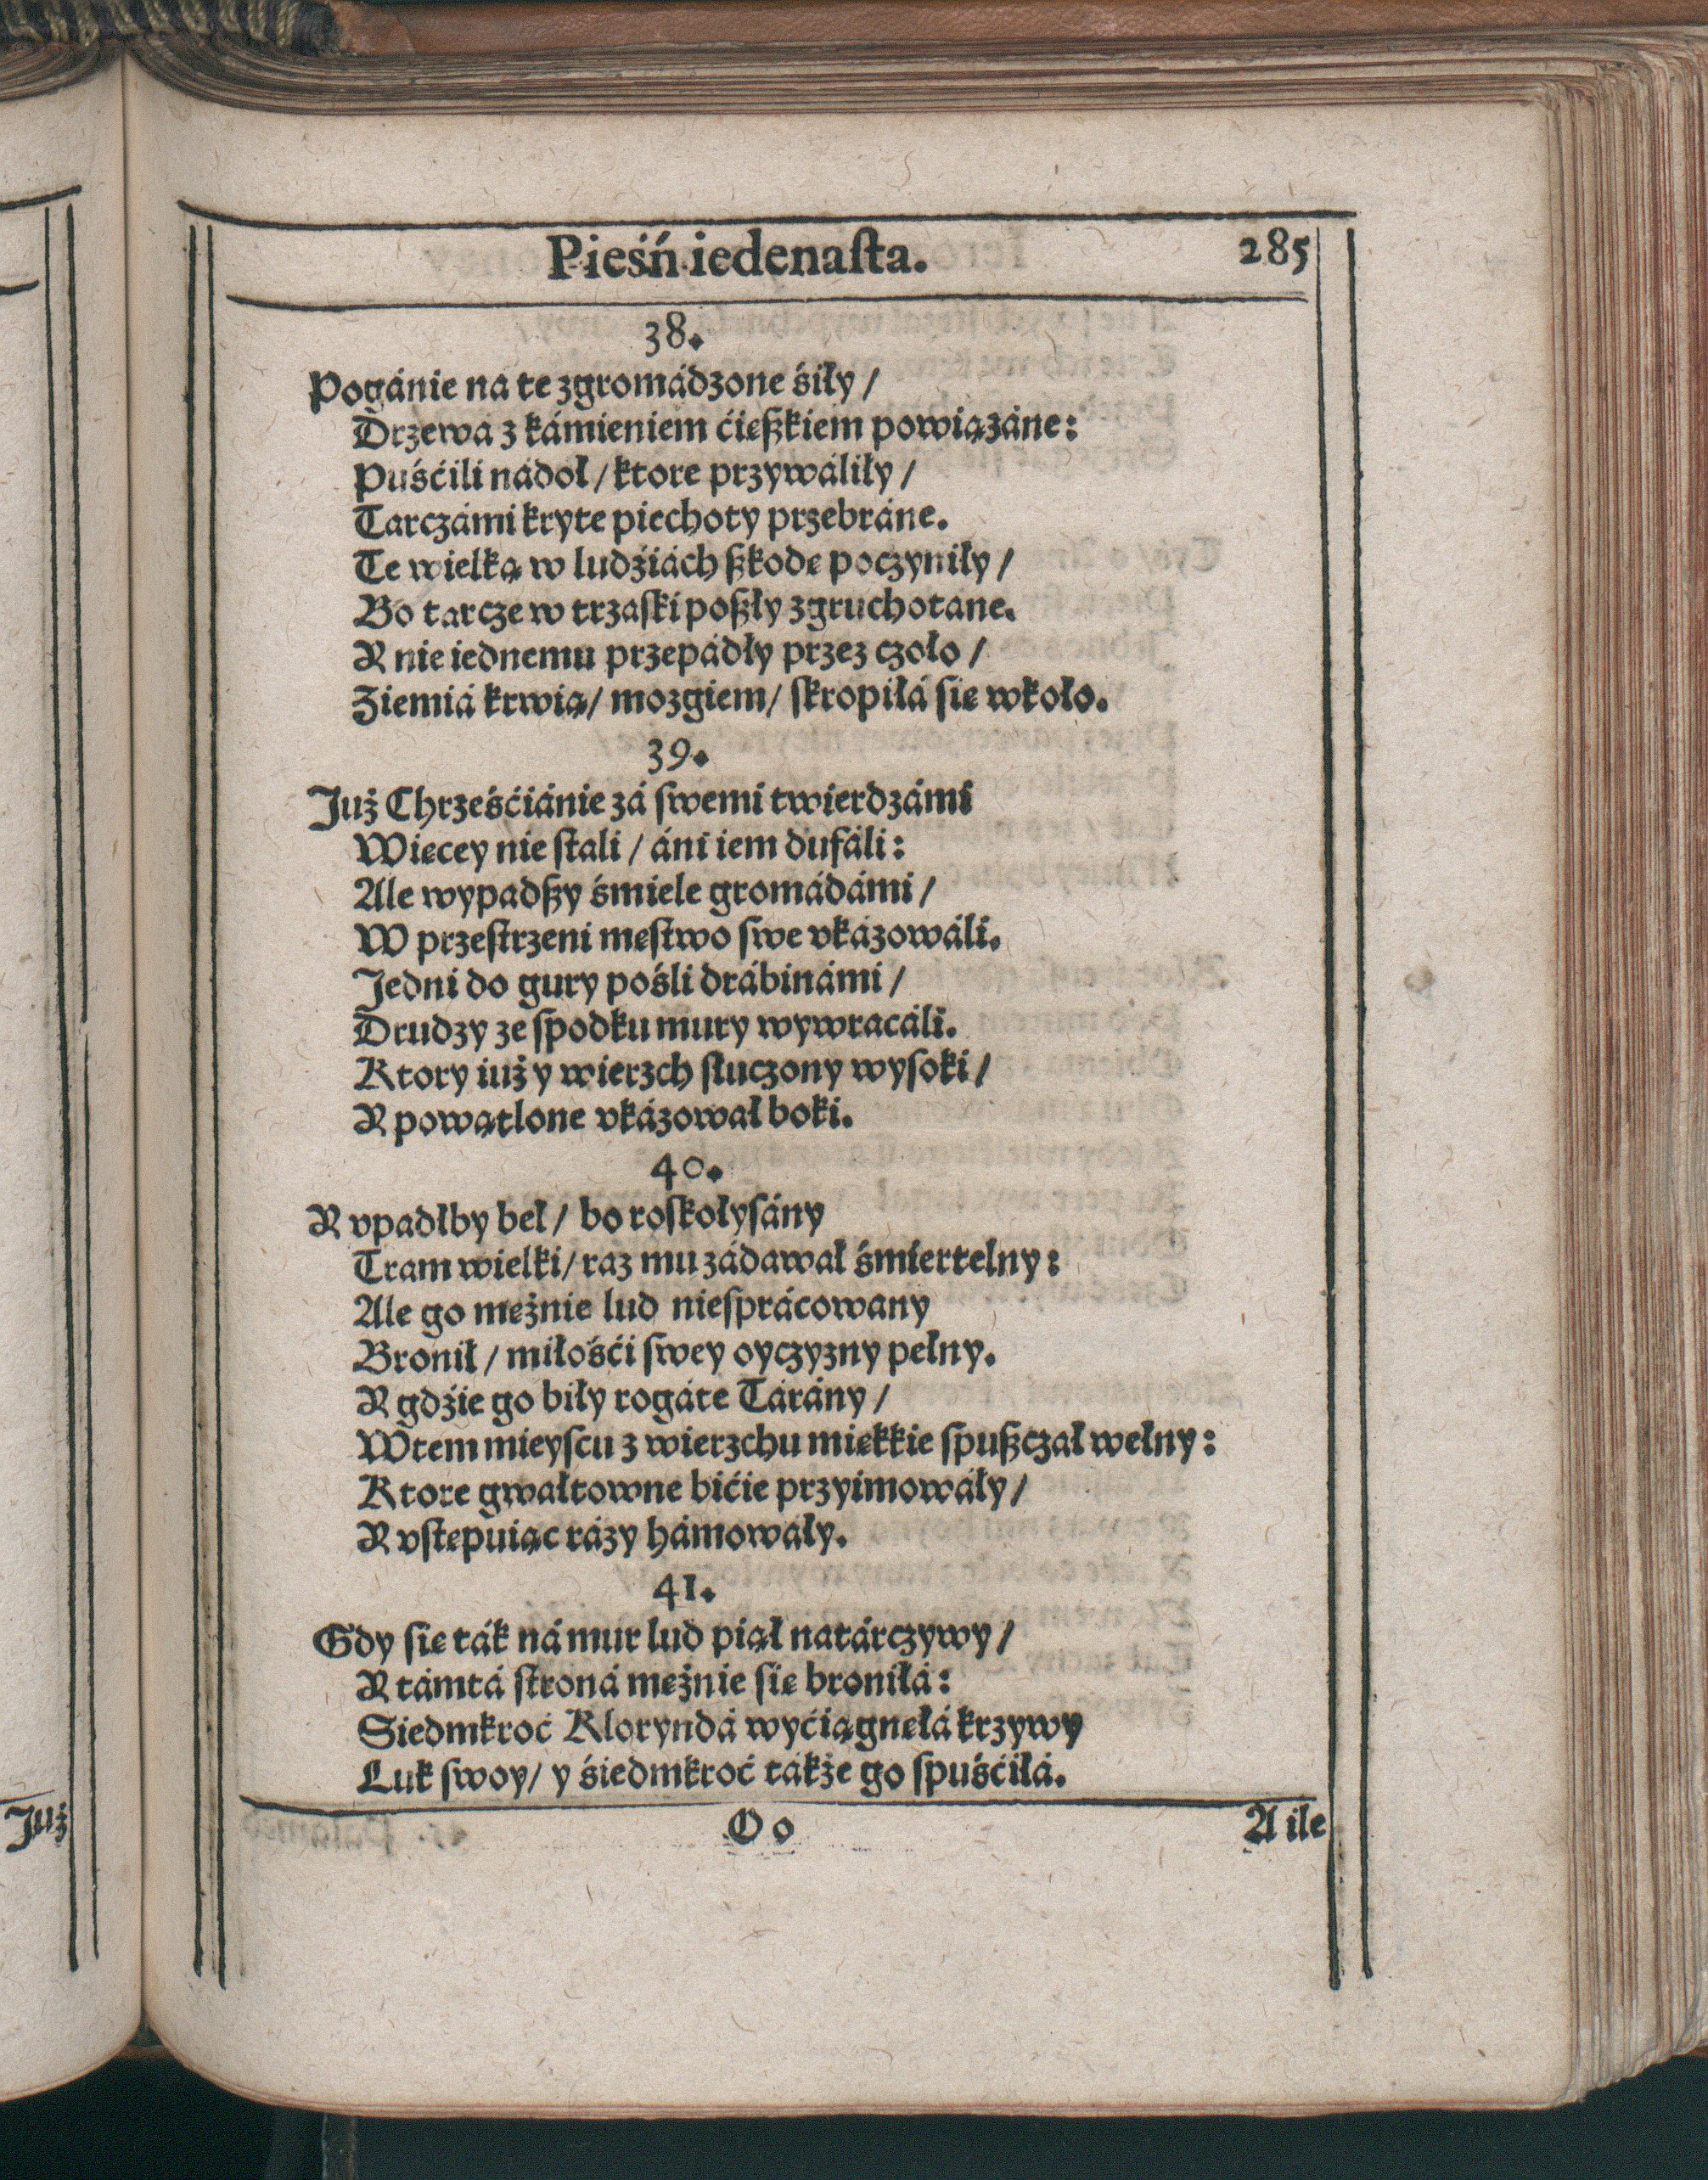 Pieśń iedenaſta. 285
38.
Pogánie na te zgromádzone śiły /
Drzewá z kámieniem ćięßkiem powiązáne:
Puśćili nádoł / ktore przywáliły /
Tarczámi kryte piechoty przebráne.
Te wielką w ludźiách ßkodę poczyniły /
Bo tarcze w trzaſki poßły zgruchotane.
R nie iednemu przepádły przez czoło /
Ziemiá krwią / mozgiem / ſkropiłá ſię wkoło.
39.
Już Chrześćiánie zá ſwemi twierdzámi
Więcey nie ſtali / áni iem dufáli:
Ale wypadßy śmiele gromádámi /
W przeſtrzeni męſtwo ſwe vkázowáli.
Jedni do gury pośli drábinámi /
Drudzy ze ſpodku mury wywracáli.
Ktory iuż y wierzch ſtuczony wyſoki /
R powątlone vkázował boki.
40.
R vpadłby beł / bo roſkołyſány
Tram wielki / raz mu zádawał śmiertelny:
Ale go mężnie lud nieſprácowany
Bronił / miłośći ſwey oyczyzny pełny.
R gdźie go biły rogáte Tárány /
Wtem mieyſcu z wierzchu miękkie ſpußczał wełny:
Ktore gwałtowne bićie przyimowáły /
R vſtępuiąc rázy hámowáły.
41.
Gdy ſię ták ná mur lud piął natárczywy /
R támtá ſtroná mężnie ſię broniłá:
Siedmkroć Kloryndá wyćiągnęłá krzywy
Luk ſwoy / y śiedmkroć tákże go ſpuśćiłá.
O o A ile
Już